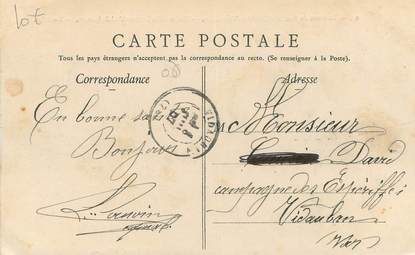 lot
CARTE POSTALE
Tous les pays étrangers n'acceptent pas la correspondance au recto. (Se renseigner à la Poste).
Correspondance
Adresse
En bonne santé
Bonjour
Monsieur
David
campagne des
Vidauban
Var